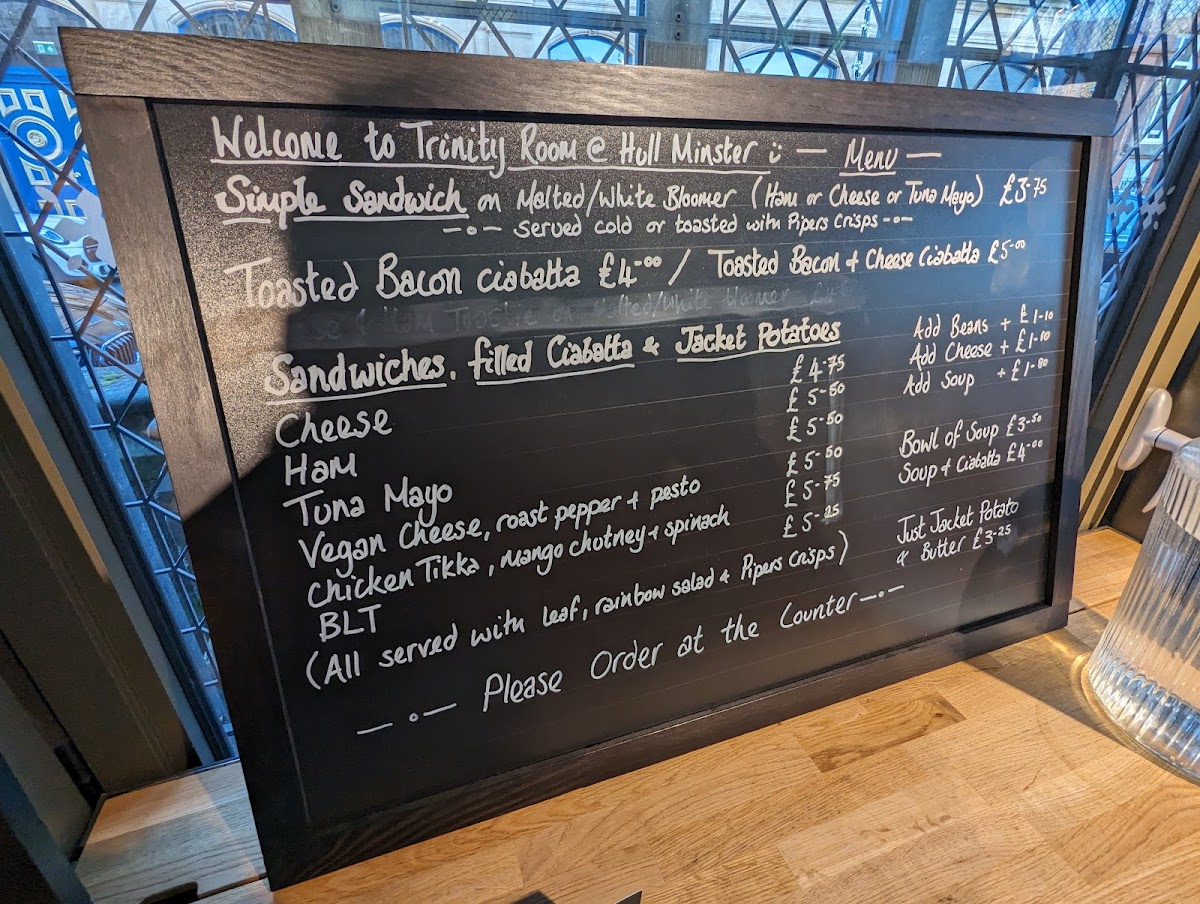 Welcome to Trinity Room @ Hull Minster — Menu —
Simple Sandwich on Malted/White Bloomer (Ham or Cheese or Tuna Mayo) £3-75
served cold or toasted with Pipers Crisps
Toasted Bacon ciabatta £4-00 / Toasted Bacon + Cheese Ciabatta £5-00
Sandwiches, filled Ciabatta & Jacket Potatoes
Cheese £4-75
Ham £5-50
Tuna Mayo £5-50
Vegan Cheese, roast pepper + pesto £5-50
Chicken Tikka, mango chutney + spinach £5-75
BLT £5-25
(All served with leaf, rainbow salad & Pipers Crisps)
Add Beans + £1-10
Add Cheese + £1-10
Add Soup + £1-80
Bowl of Soup £3-50
Soup + Ciabatta £4-00
Just Jacket Potato
& Butter £3-25
Please Order at the Counter